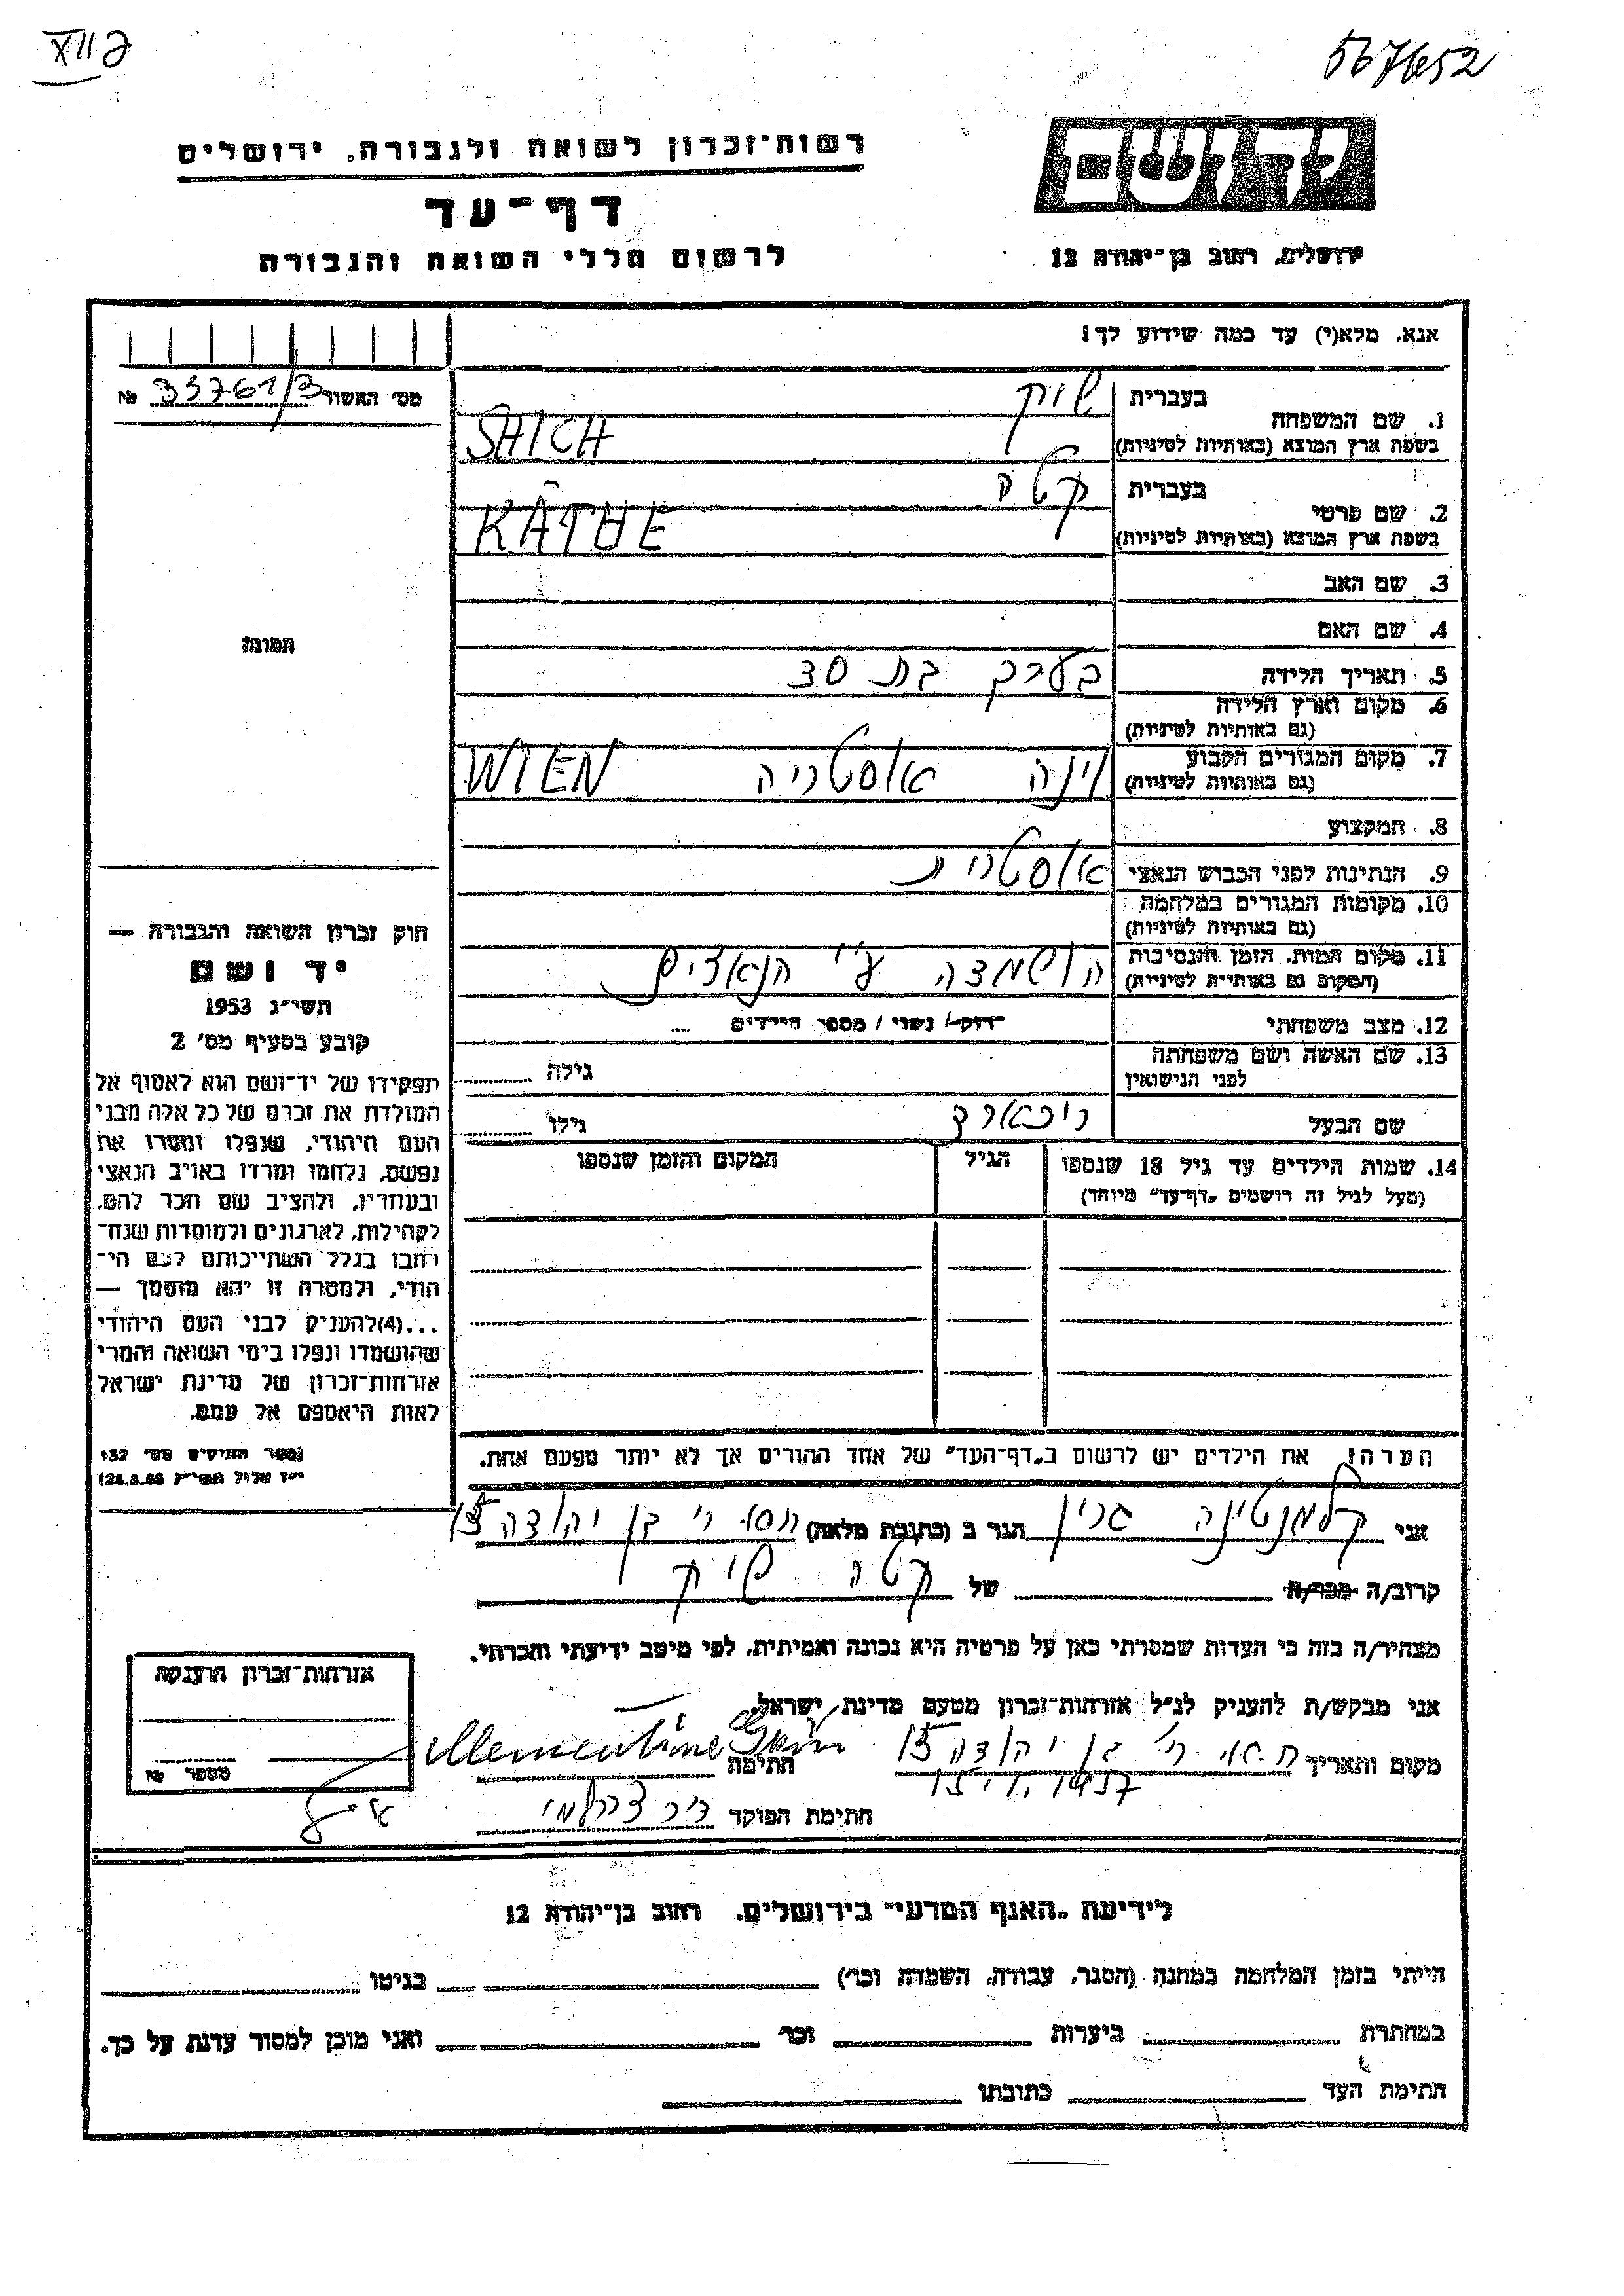 XII 2
567652
יד ושם
ירושלים, רחוב בן־יהודה 12
רשות־זכרון לשואה ולגבורה, ירושלים
דף־עד
לרשום חללי השואה והגבורה
אנא, מלא(י) עד כמה שידוע לך!
מס' האשור 33761/3 №
תמונה
חוק זכרון השואה והגבורה —
יד ושם
תשי״ג 1953
קובע בסעיף מס' 2
תפקידו של יד־ושם הוא לאסוף אל
המולדת את זכרם של כל אלה מבני
העם היהודי, שנפלו ומסרו את
נפשם, נלחמו ומרדו באויב הנאצי
ובעוזריו, ולהציב שם וזכר להם,
לקהילות, לארגונים ולמוסדות שנח־
רבו בגלל השתייכותם לעם הי־
הודי, ולמטרה זו יהא מוסמך —
...(4)להעניק לבני העם היהודי
שהושמדו ונפלו בימי השואה והמרי
אזרחות־זכרון של מדינת ישראל
לאות היאספם אל עמם.
(ספר החוקים מס' 132
בעברית שיק
1. שם המשפחה
בשפת ארץ המוצא (באותיות לטיניות) SHICH
בעברית קטה
2. שם פרטי
בשפת ארץ המוצא (באותיות לטיניות) KÄTHE
3. שם האב
4. שם האם
5. תאריך הלידה בערך בת 30
6. מקום וארץ הלידה
(גם באותיות לטיניות)
7. מקום המגורים הקבוע וינה אוסטריה WIEN
(גם באותיות לטיניות)
8. המקצוע
9. הנתינות לפני הכבוש הנאצי אוסטרית
10. מקומות המגורים במלחמה
(גם באותיות לטיניות)
11. מקום המות, הזמן והנסיבות הושמדה ע״י הנאצים
(המקום גם באותיות לטיניות)
12. מצב משפחתי רווק / נשוי / מספר הילדים ...
13. שם האשה ושם משפחתה גילה
לפני הנישואין
שם הבעל ריכארד גילו
14. שמות הילדים עד גיל 18 שנספו הגיל המקום והזמן שנספו
(מעל לגיל זה רושמים „דף־עד״ מיוחד)
הערה! את הילדים יש לרשום ב„דף־העד״ של אחד ההורים אך לא יותר מפעם אחת.
אני קלמנטינה גרין הגר ב (כתובת מלאה) רח' בן יהודה 15
קרוב/ה מכר/ה של קטה שיק
מצהיר/ה בזה כי העדות שמסרתי כאן על פרטיה היא נכונה ואמיתית, לפי מיטב ידיעתי והכרתי.
אני מבקש/ת להעניק לנ״ל אזרחות־זכרון מטעם מדינת ישראל.
מקום ותאריך רח' בן יהודה 15 חתימה Klementine Grün
15.I.1957
חתימת הפוקד
אזרחות־זכרון הוענקה
מספר №
לידיעת „האגף המדעי״ בירושלים, רחוב בן־יהודה 12
הייתי בזמן המלחמה במחנה (הסגר, עבודה, השמדה וכו') בגיטו
במחתרת ביערות וכו' ואני מוכן למסור עדות על כך.
חתימת העד כתובתו